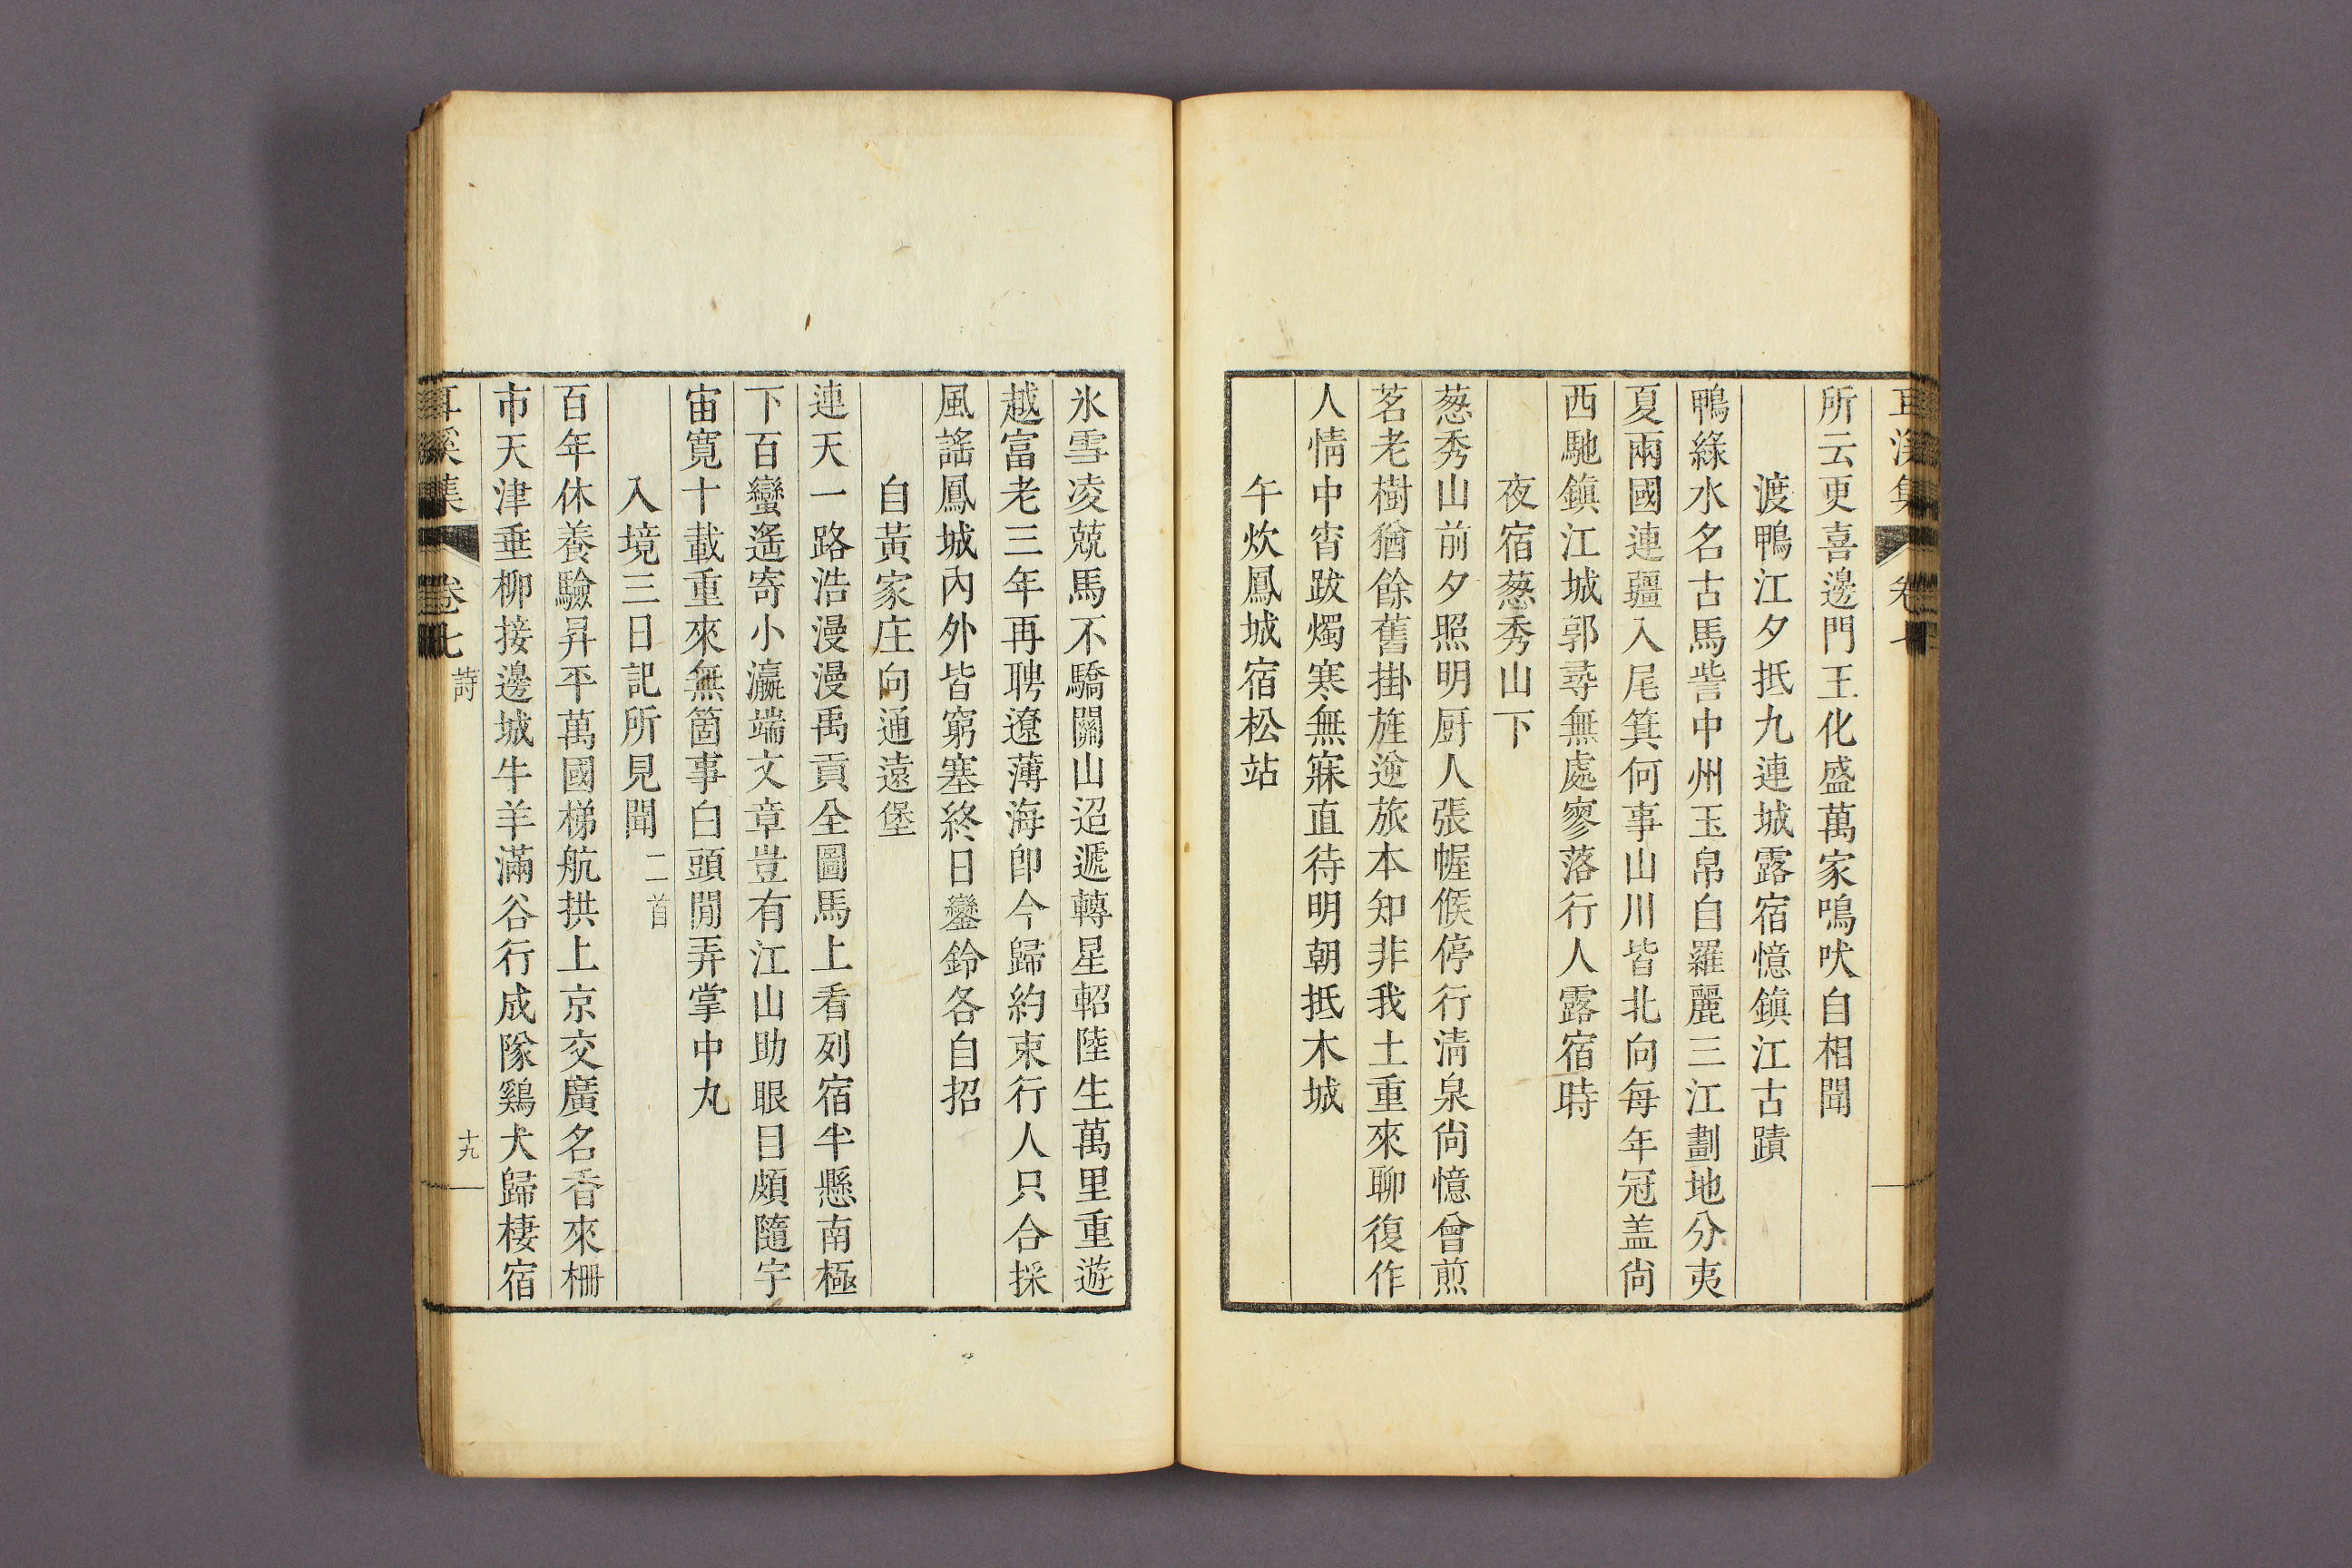 耳溪集 卷七
所云更喜邊門王化盛萬家鳴吠自相聞
渡鴨江夕抵九連城露宿憶鎭江古蹟
鴨綠水名古馬訾中州玉帛自羅麗三江劃地分夷
夏兩國連疆入尾箕何事山川皆北向每年冠盖尙
西馳鎭江城郭尋無處寥落行人露宿時
夜宿葱秀山下
葱秀山前夕照明厨人張幄候停行淸泉尙憶曾煎
茗老樹猶餘舊掛旌逆旅本知非我土重來聊復作
人情中宵跋燭寒無寐直待明朝抵木城
午炊鳳城宿松站
氷雪凌兢馬不驕關山迢遞轉星軺陸生萬里重遊
越富老三年再聘遼薄海卽今歸約束行人只合採
風謠鳳城內外皆窮塞終日鑾鈴各自招
自黃家庄向通遠堡
連天一路浩漫漫禹貢全圖馬上看列宿半懸南極
下百蠻遙寄小瀛端文章豈有江山助眼目頗隨宇
宙寬十載重來無箇事白頭閒弄掌中丸
入境三日記所見聞 二首
百年休養驗昇平萬國梯航拱上京交廣名香來柵
市天津垂柳接邊城牛羊滿谷行成隊鷄犬歸棲宿
耳溪集 卷七 詩 十九